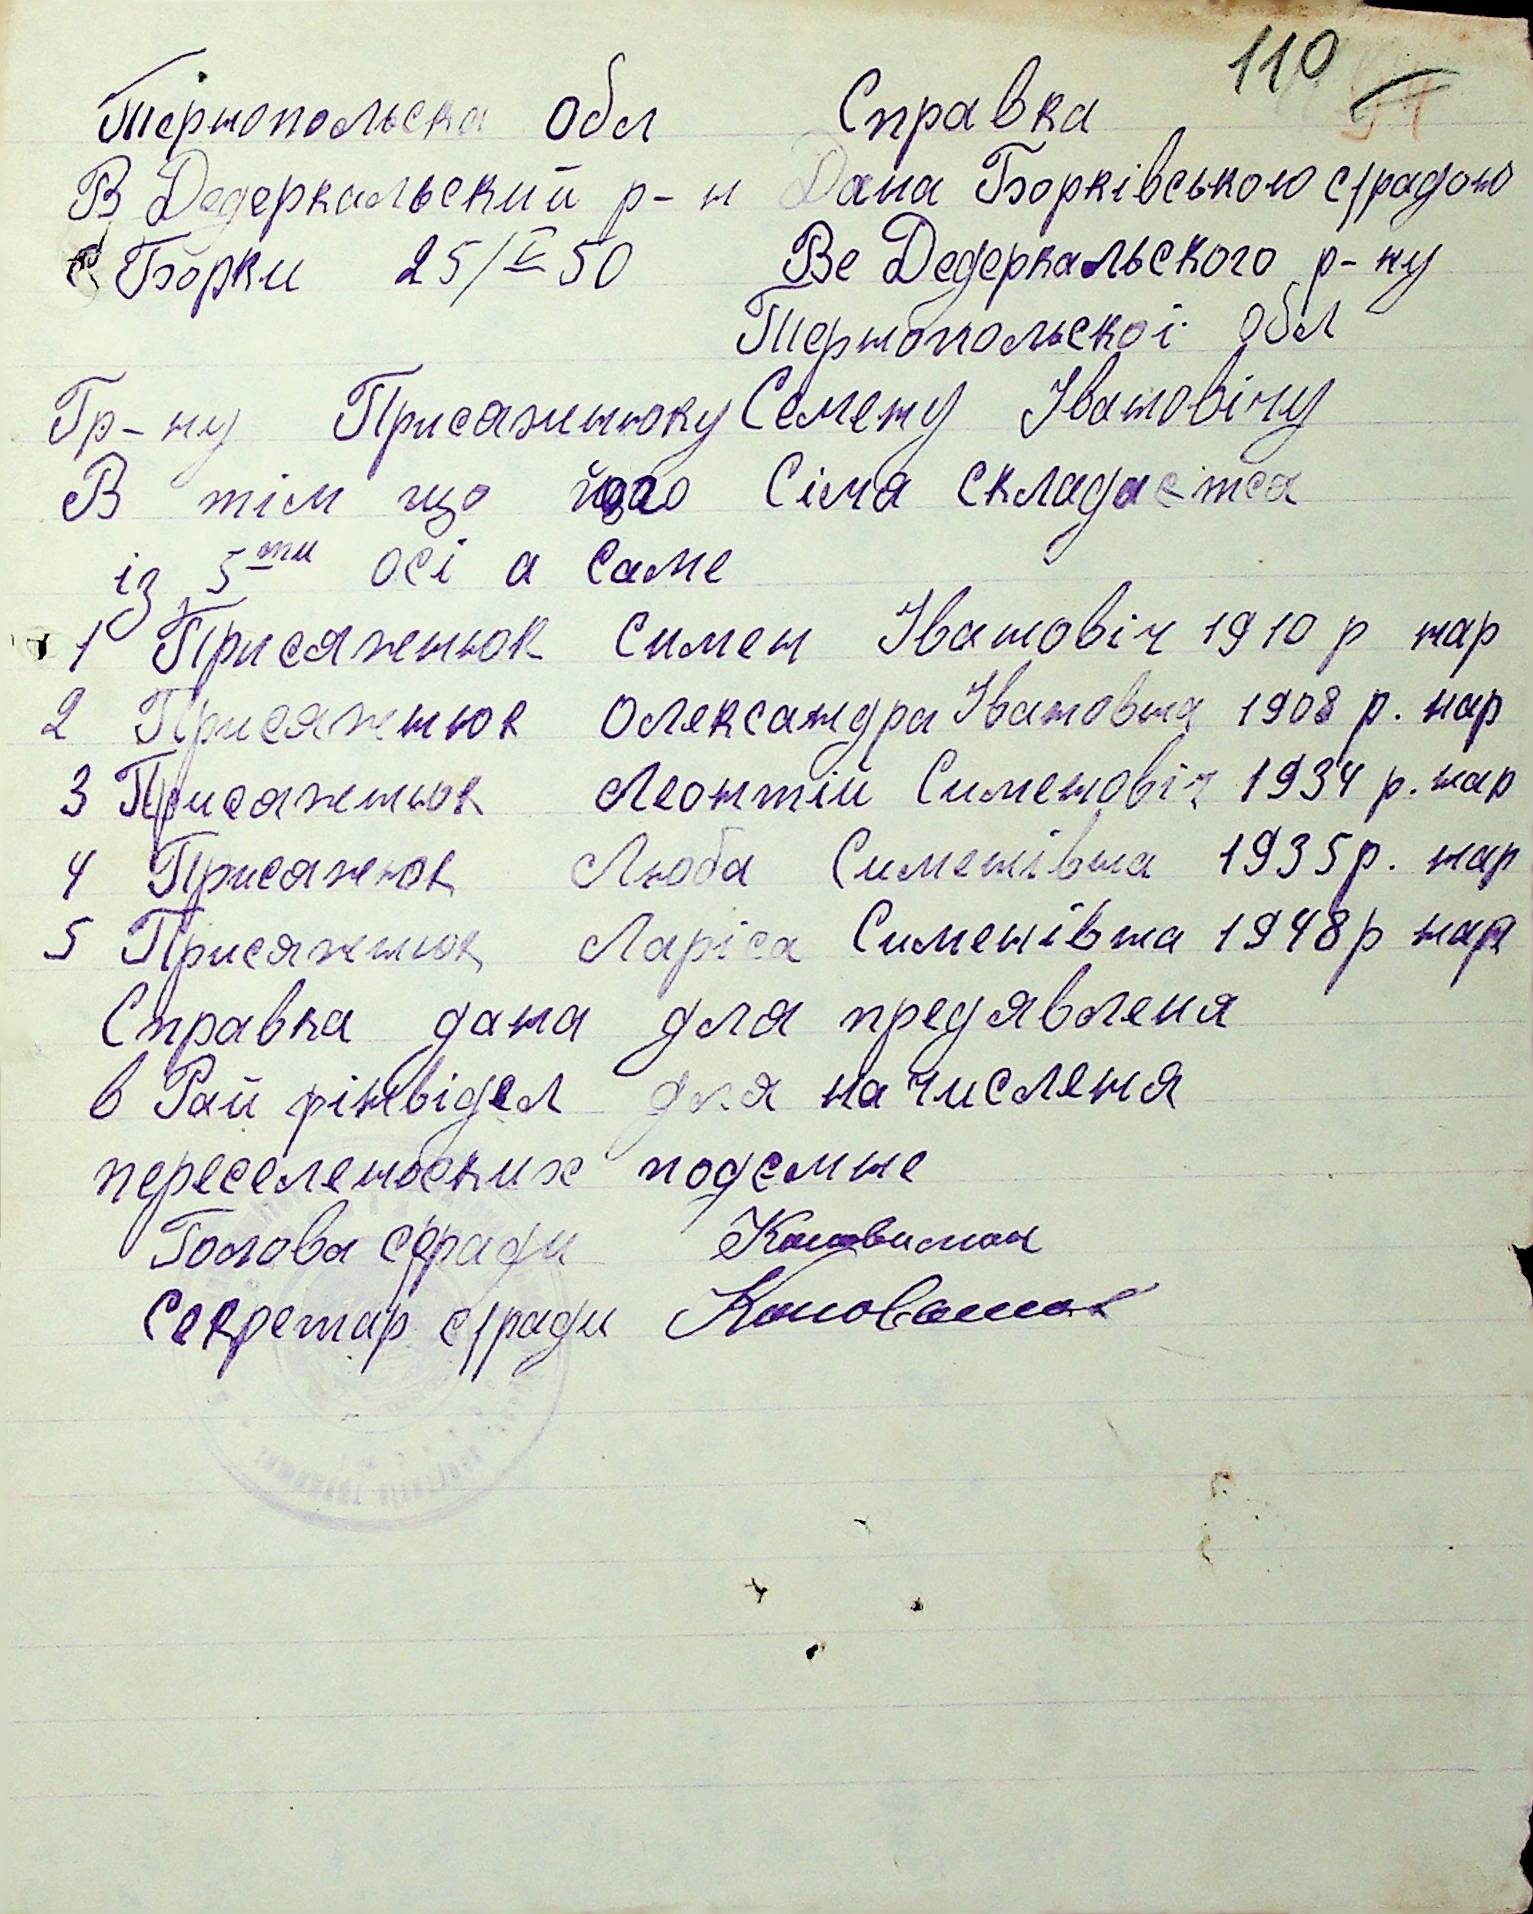 110
Тернопольска Обл Справка
В Дедеркальский р-н Дана Борківською с/радою
с Борки 25/V 50 Ве Дедеркальского р-ну
Тернопольскоі обл
Гр-ну Присяжнюку Семену Івановічу
В тім що його Сімя складаєтса
із 5ти осі а саме
1 Присяжнюк Симен Івановіч 1910 р нар
2 Присяжнюк Олександра Івановна 1908 р. нар
3 Присяжнюк Леонтій Сименовіч 1934 р. нар
4 Присяжнюк Люба Сименівна 1935 р. нар
5 Присяжнюк Ларіса Сименівна 1948 р нар
Справка дана для предявленя
в Рай фінвідел для начисленя
переселенських подємне
Голова с/ради
Секретар с/ради